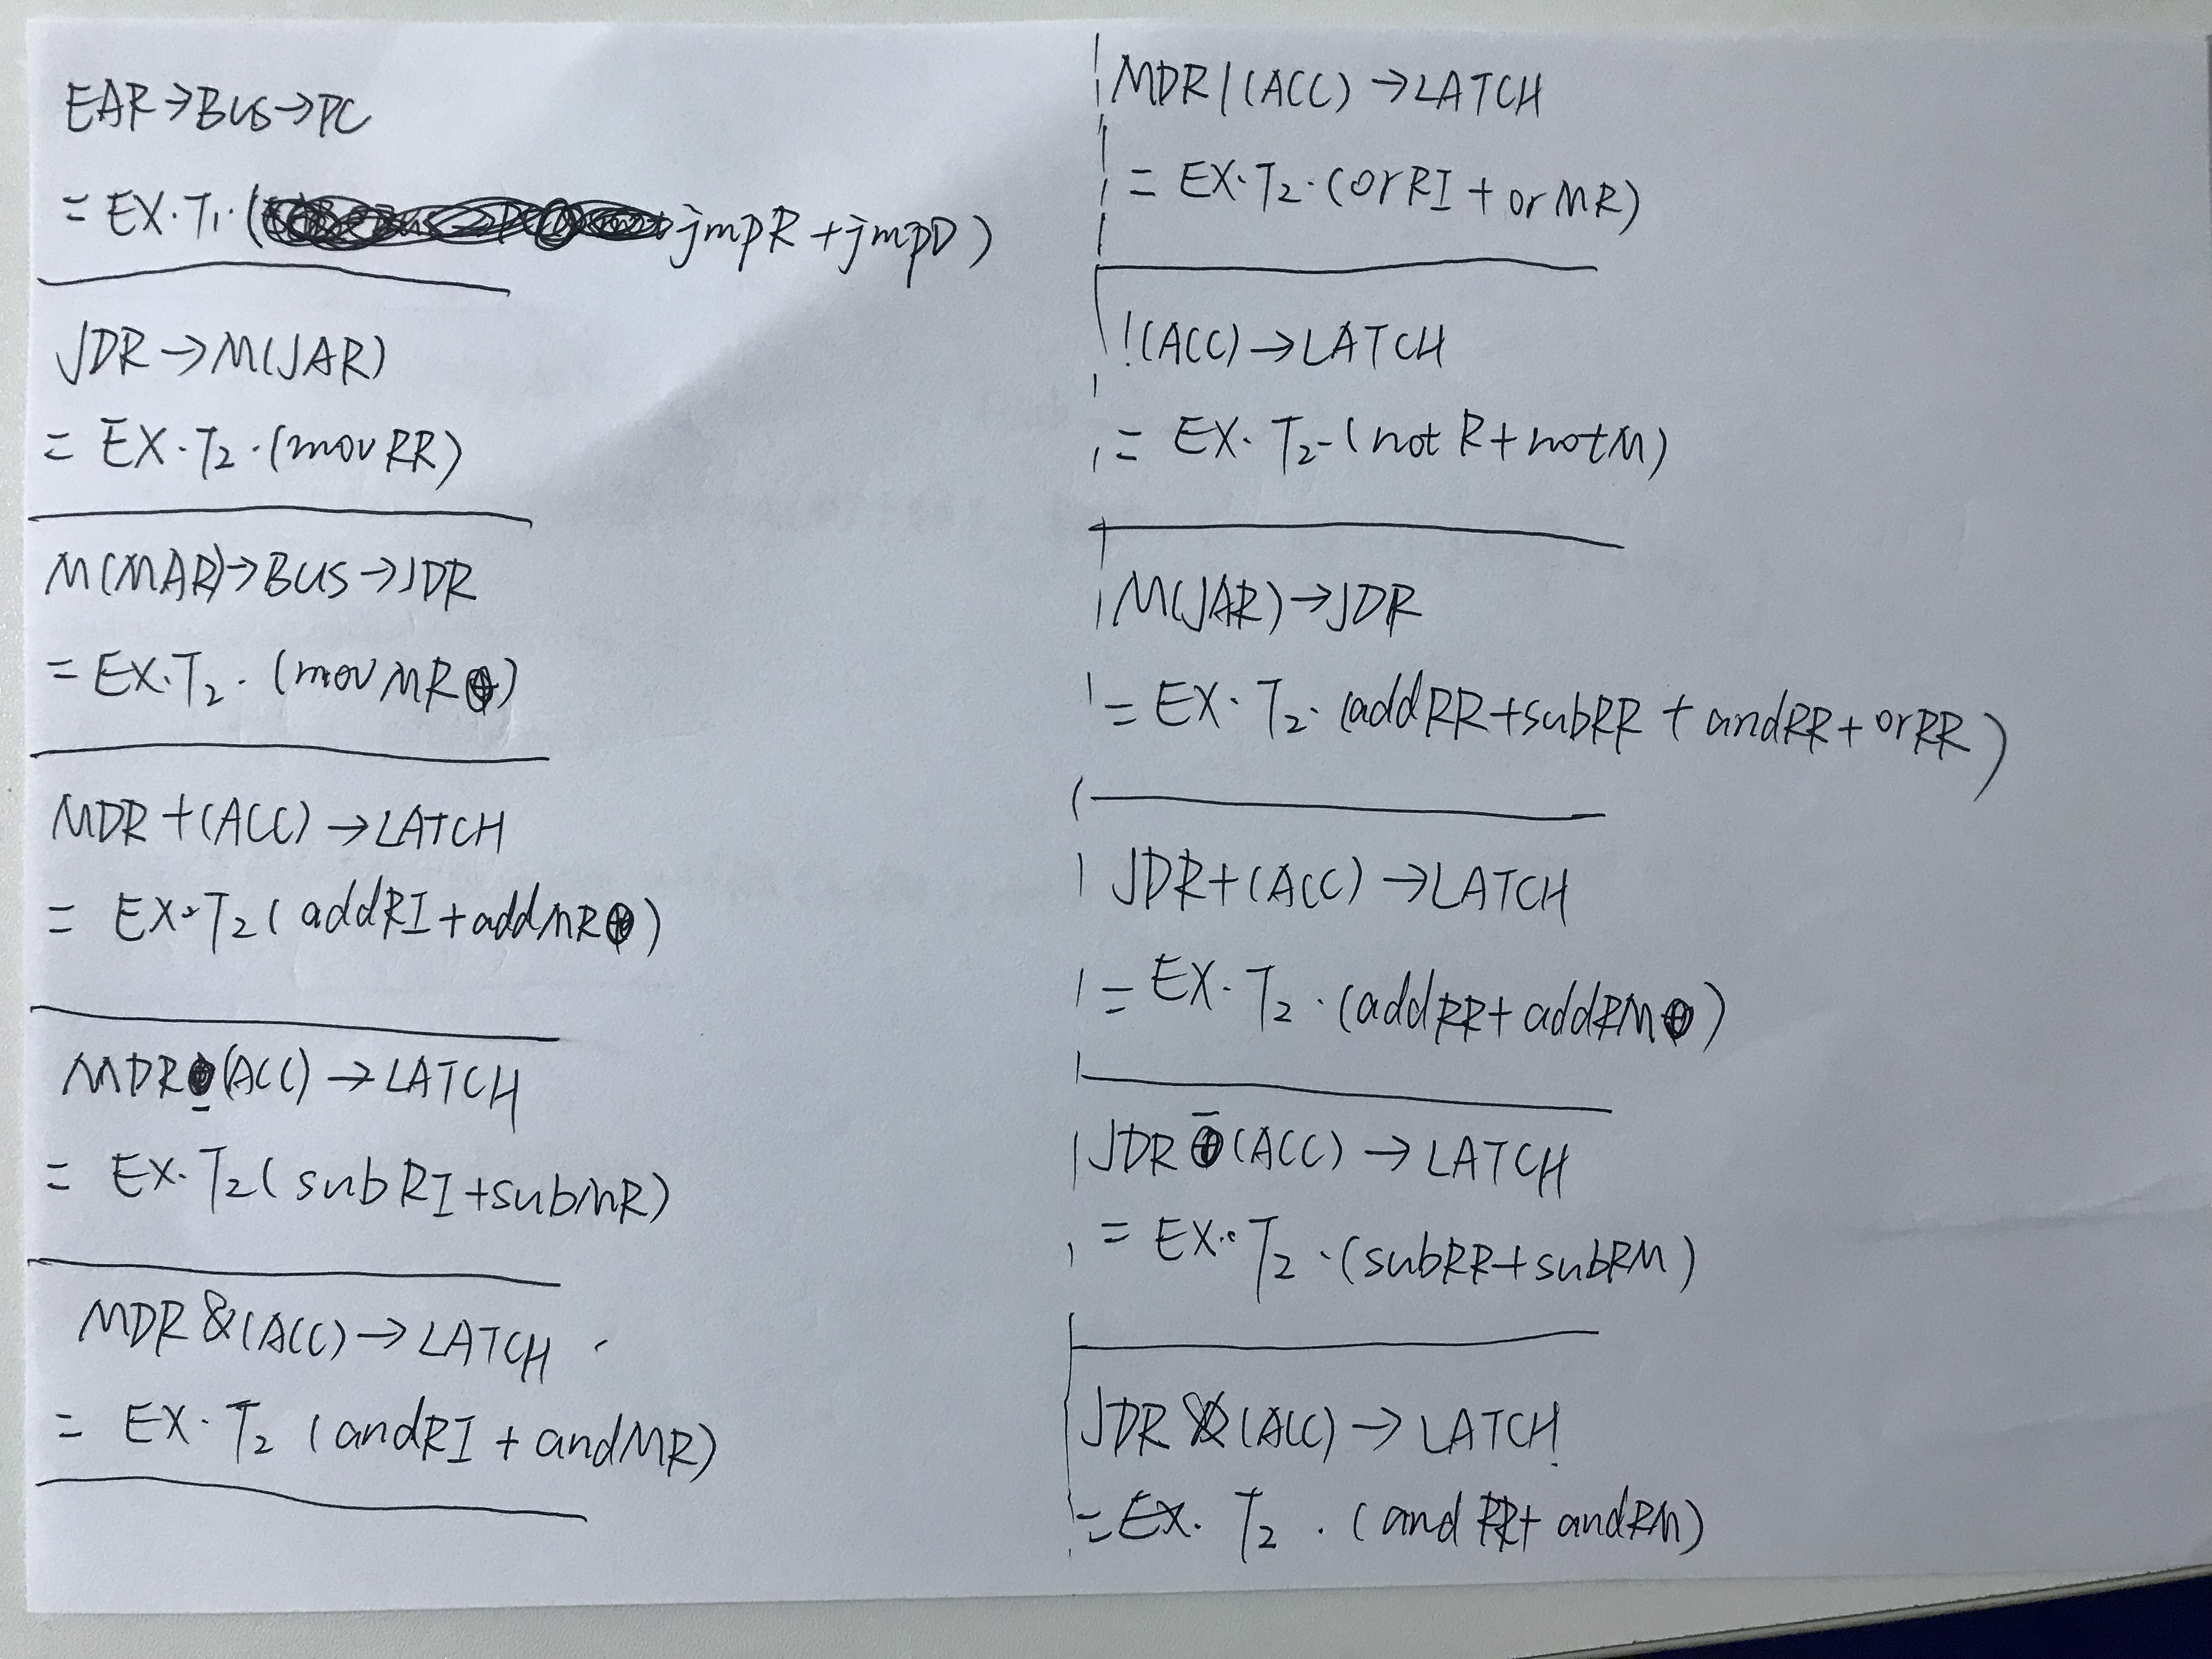 EAR→BUS→PC
= EX·T₁·( jmpR + jmpD )
JDR→M(JAR)
= EX·T₂·(movRR)
M(MAR)→BUS→JDR
= EX·T₂·(movMR)
MDR+(ACC)→LATCH
= EX·T₂(addRI+addMR)
MDR-(ACC)→LATCH
= EX·T₂(subRI+subMR)
MDR&(ACC)→LATCH
= EX·T₂(andRI+andMR)
MDR|(ACC)→LATCH
= EX·T₂·(orRI+orMR)
!(ACC)→LATCH
= EX·T₂-(notR+notM)
M(JAR)→JDR
= EX·T₂·(addRR+subRR+andRR+orRR)
JDR+(ACC)→LATCH
= EX·T₂·(addRR+addRM)
JDR-(ACC)→LATCH
= EX·T₂·(subRR+subRM)
JDR&(ACC)→LATCH
= EX·T₂·(andRR+andRM)